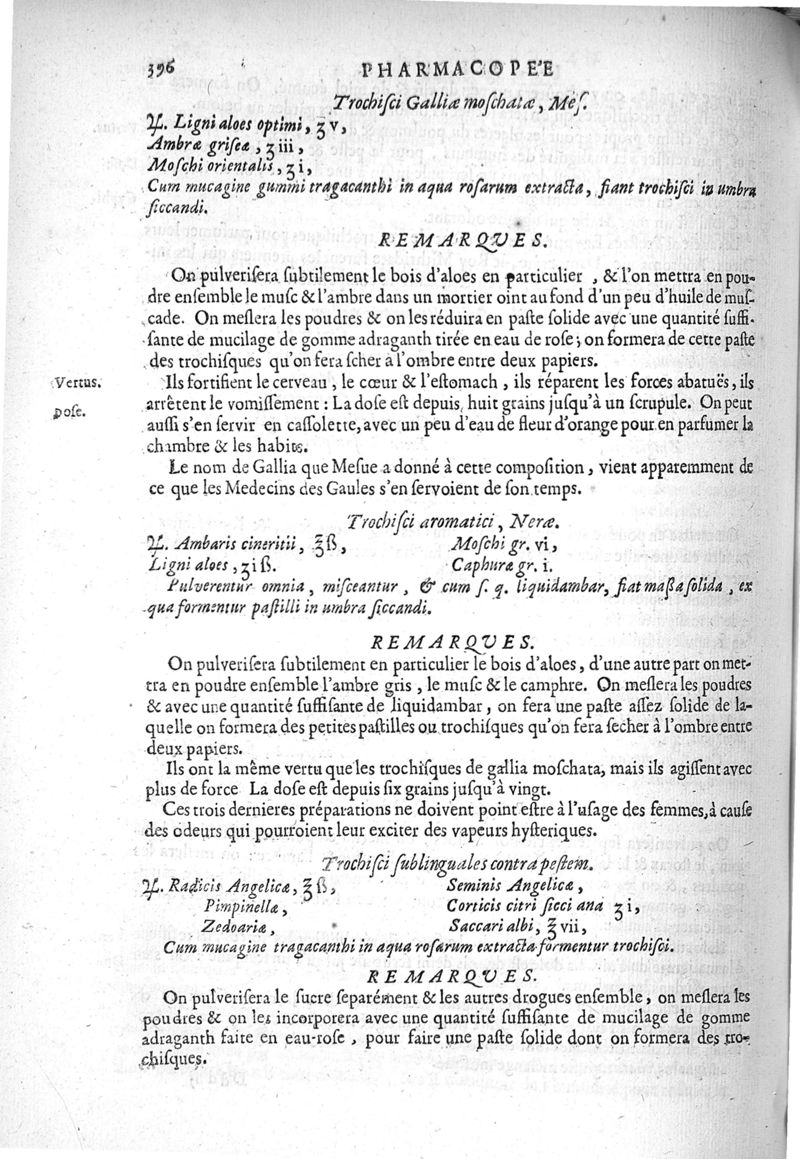 396 PHARMACOPE'E
Trochiſci Galliæ moſchatæ, Meſ.
♃. Ligni aloes optimi, ʒ v,
Ambræ griſeæ, ʒ iii,
Moſchi orientalis, ʒ i,
Cum mucagine gummi tragacanthi in aqua roſarum extracta, fiant trochiſci in umbra
ſiccandi.
REMARQVES.
On pulveriſera ſubtilement le bois d'aloes en particulier, & l'on mettra en pou-
dre enſemble le muſc & l'ambre dans un mortier oint au fond d'un peu d'huile de muſ-
cade. On meſlera les poudres & on les réduira en paſte ſolide avec une quantité ſuffi-
ſante de mucilage de gomme adraganth tirée en eau de roſe; on formera de cette paſte
des trochiſques qu'on fera ſcher à l'ombre entre deux papiers.
Vertus. Ils fortifient le cerveau, le cœur & l'eſtomach, ils réparent les forces abatuës, ils
Doſe. arrêtent le vomiſſement: La doſe eſt depuis huit grains juſqu'à un ſcrupule. On peut
auſſi s'en ſervir en caſſolette, avec un peu d'eau de fleur d'orange pour en parfumer la
chambre & les habits.
Le nom de Gallia que Meſue a donné à cette compoſition, vient apparemment de
ce que les Medecins des Gaules s'en ſervoient de ſon temps.
Trochiſci aromatici, Neræ.
♃. Ambaris cineritii, ℥ ß, Moſchi gr. vi,
Ligni aloes, ʒi ß. Caphuræ gr. i.
Pulverentur omnia, miſceantur, & cum ſ. q. liquidambar, fiat maſſa ſolida, ex
qua formentur paſtilli in umbra ſiccandi.
REMARQVES.
On pulveriſera ſubtilement en particulier le bois d'aloes, d'une autre part on met-
tra en poudre enſemble l'ambre gris, le muſc & le camphre. On meſlera les poudres
& avec une quantité ſuffiſante de liquidambar, on fera une paſte aſſez ſolide de la-
quelle on formera des petites paſtilles ou trochiſques qu'on fera ſecher à l'ombre entre
deux papiers.
Ils ont la même vertu que les trochiſques de gallia moſchata, mais ils agiſſent avec
plus de force La doſe eſt depuis ſix grains juſqu'à vingt.
Ces trois dernieres préparations ne doivent point eſtre à l'uſage des femmes, à cauſe
des odeurs qui pourroient leur exciter des vapeurs hyſteriques.
Trochiſci ſublinguales contra peſtem.
♃. Radicis Angelicæ, ℥ ß, Seminis Angelicæ,
Pimpinellæ, Corticis citri ſicci ana ʒ i,
Zedoariæ, Saccari albi, ℥ vii,
Cum mucagine tragacanthi in aqua roſarum extracta formentur trochiſci.
REMARQVES.
On pulveriſera le ſucre ſeparément & les autres drogues enſemble, on meſlera les
poudres & on les incorporera avec une quantité ſuffiſante de mucilage de gomme
adraganth faite en eau-roſe, pour faire une paſte ſolide dont on formera des tro-
chiſques.